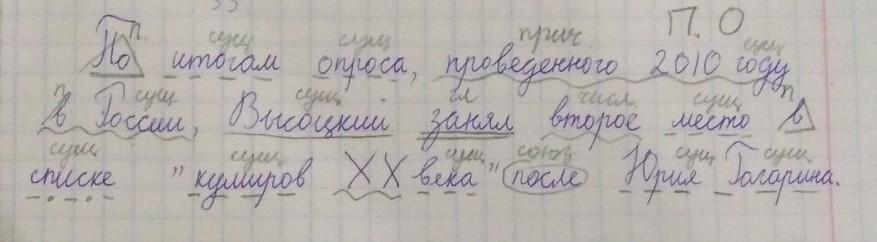 П. О
п. сущ сущ прич. сущ
По итогам опроса, проведенного 2010 году
п сущ сущ гл числ. сущ п
в России, Высоцкий занял второе место в
сущ сущ сущ союз сущ сущ.
списке "кумиров XX века" после Юрия Гагарина.